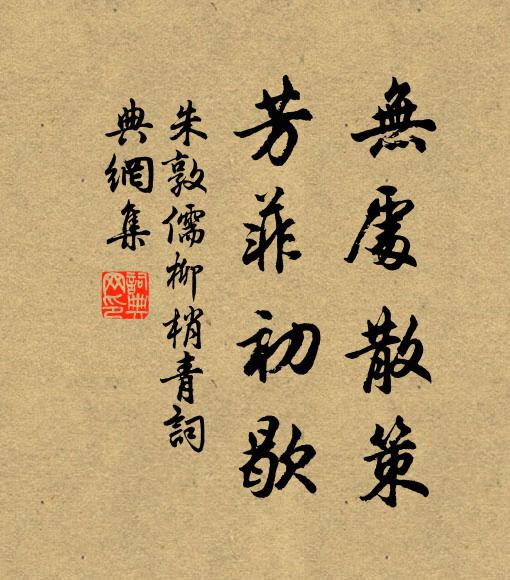 無處散策
芳菲初歇
朱敦儒柳梢青詞
典網集
詞典網印